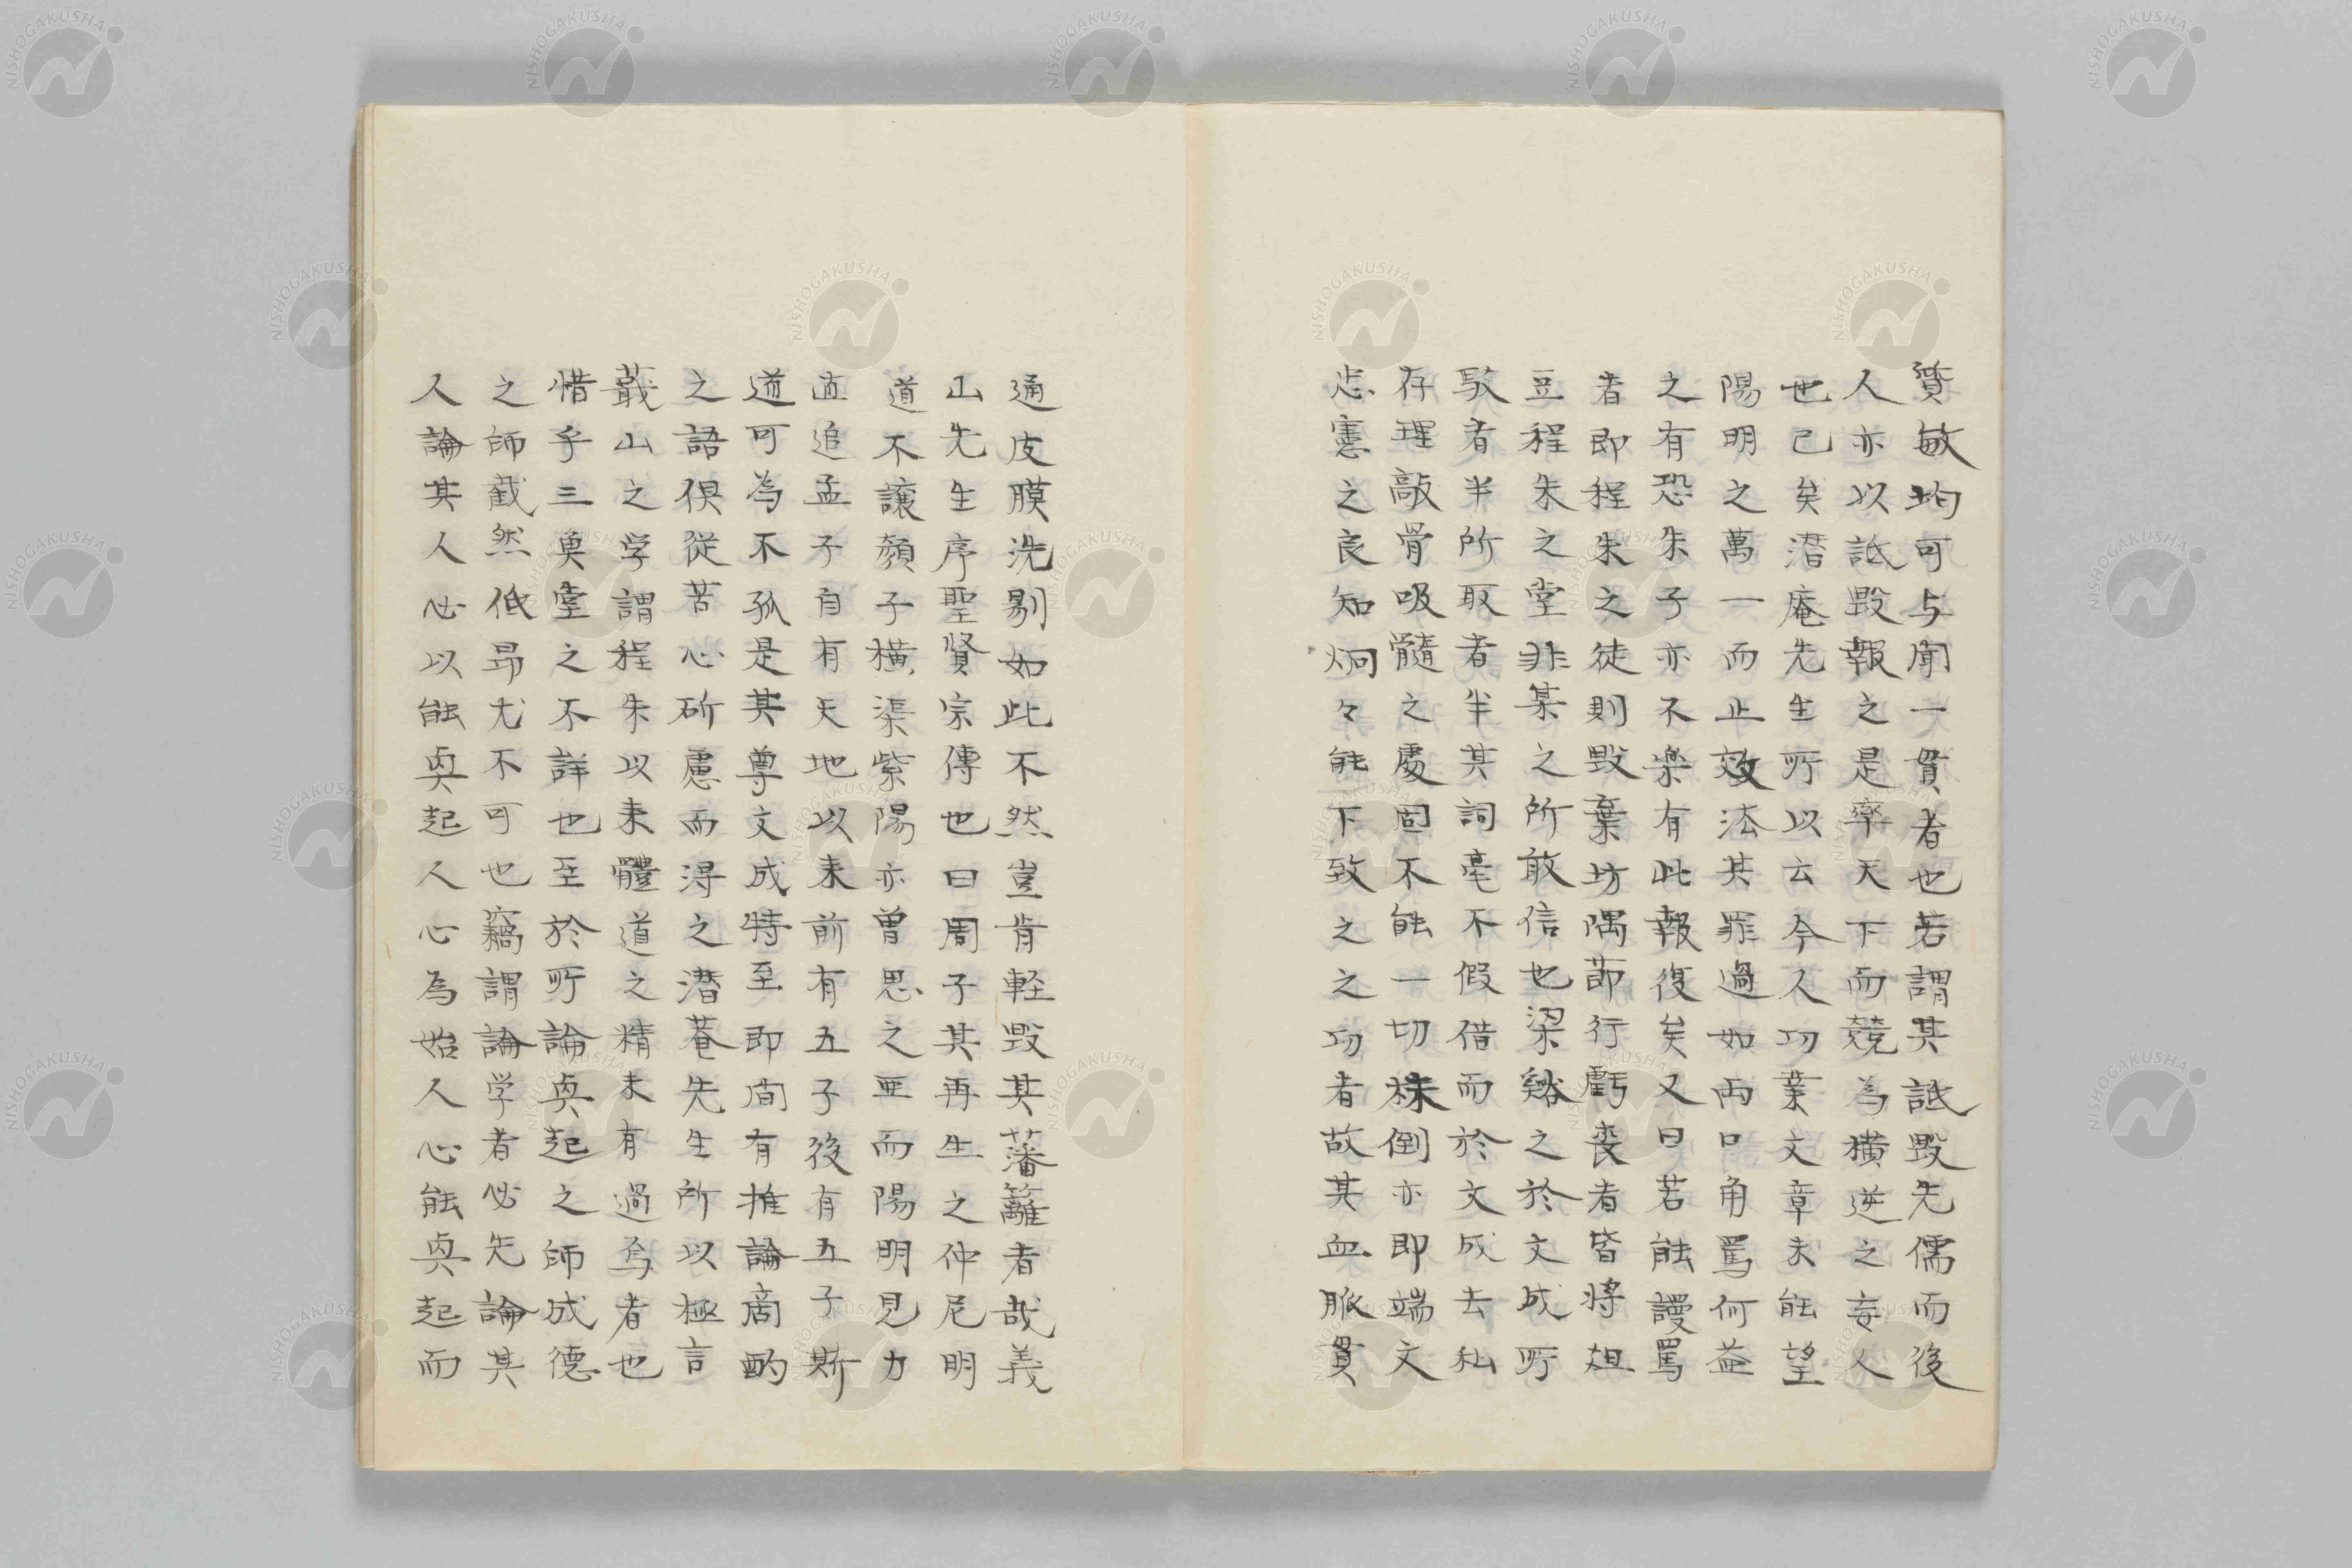 賢敏均可与聞一貫者也若謂其詆毀先儒而後
人亦以詆毀報之是率天下而競為横逆之妄人
也已矣潜庵先生所以云今人功業文章未能望
陽明之萬一而止效法其罪過如両口角罵何益
之有恐朱子亦不楽有此報復矣又曰若能謾罵
者即程朱之徒則毀棄坊隅節行虧喪者皆将俎
豆程朱之堂非某之所敢信也梁谿之於文成所
駁者半所取者半其詞毫不假借而於文成去私
存理敲骨吸髓之處固不能一切抹倒亦即端文
忠憲之良知炯々能下致之之功者故其血脈貫
通皮膜洗剔如此不然豈肯軽毀其藩籬者哉義
山先生序聖賢宗傳也曰周子其再生之仲尼明
道不譲顔子横渠紫陽亦曽思之亜而陽明見力
直追孟子自有天地以来前有五子後有五子斯
道可為不孤是其尊文成特至即間有推論商酌
之語俱従苦心研慮而得之潜菴先生所以極言
蕺山之学謂程朱以来體道之精未有過焉者也
惜乎三奠堂之不詳也至於所論奥起之師成德
之師截然低昂尤不可也竊謂論学者必先論其
人論其人必以能奥起人心為始人心能奥起而
NISHOGAKUSHA